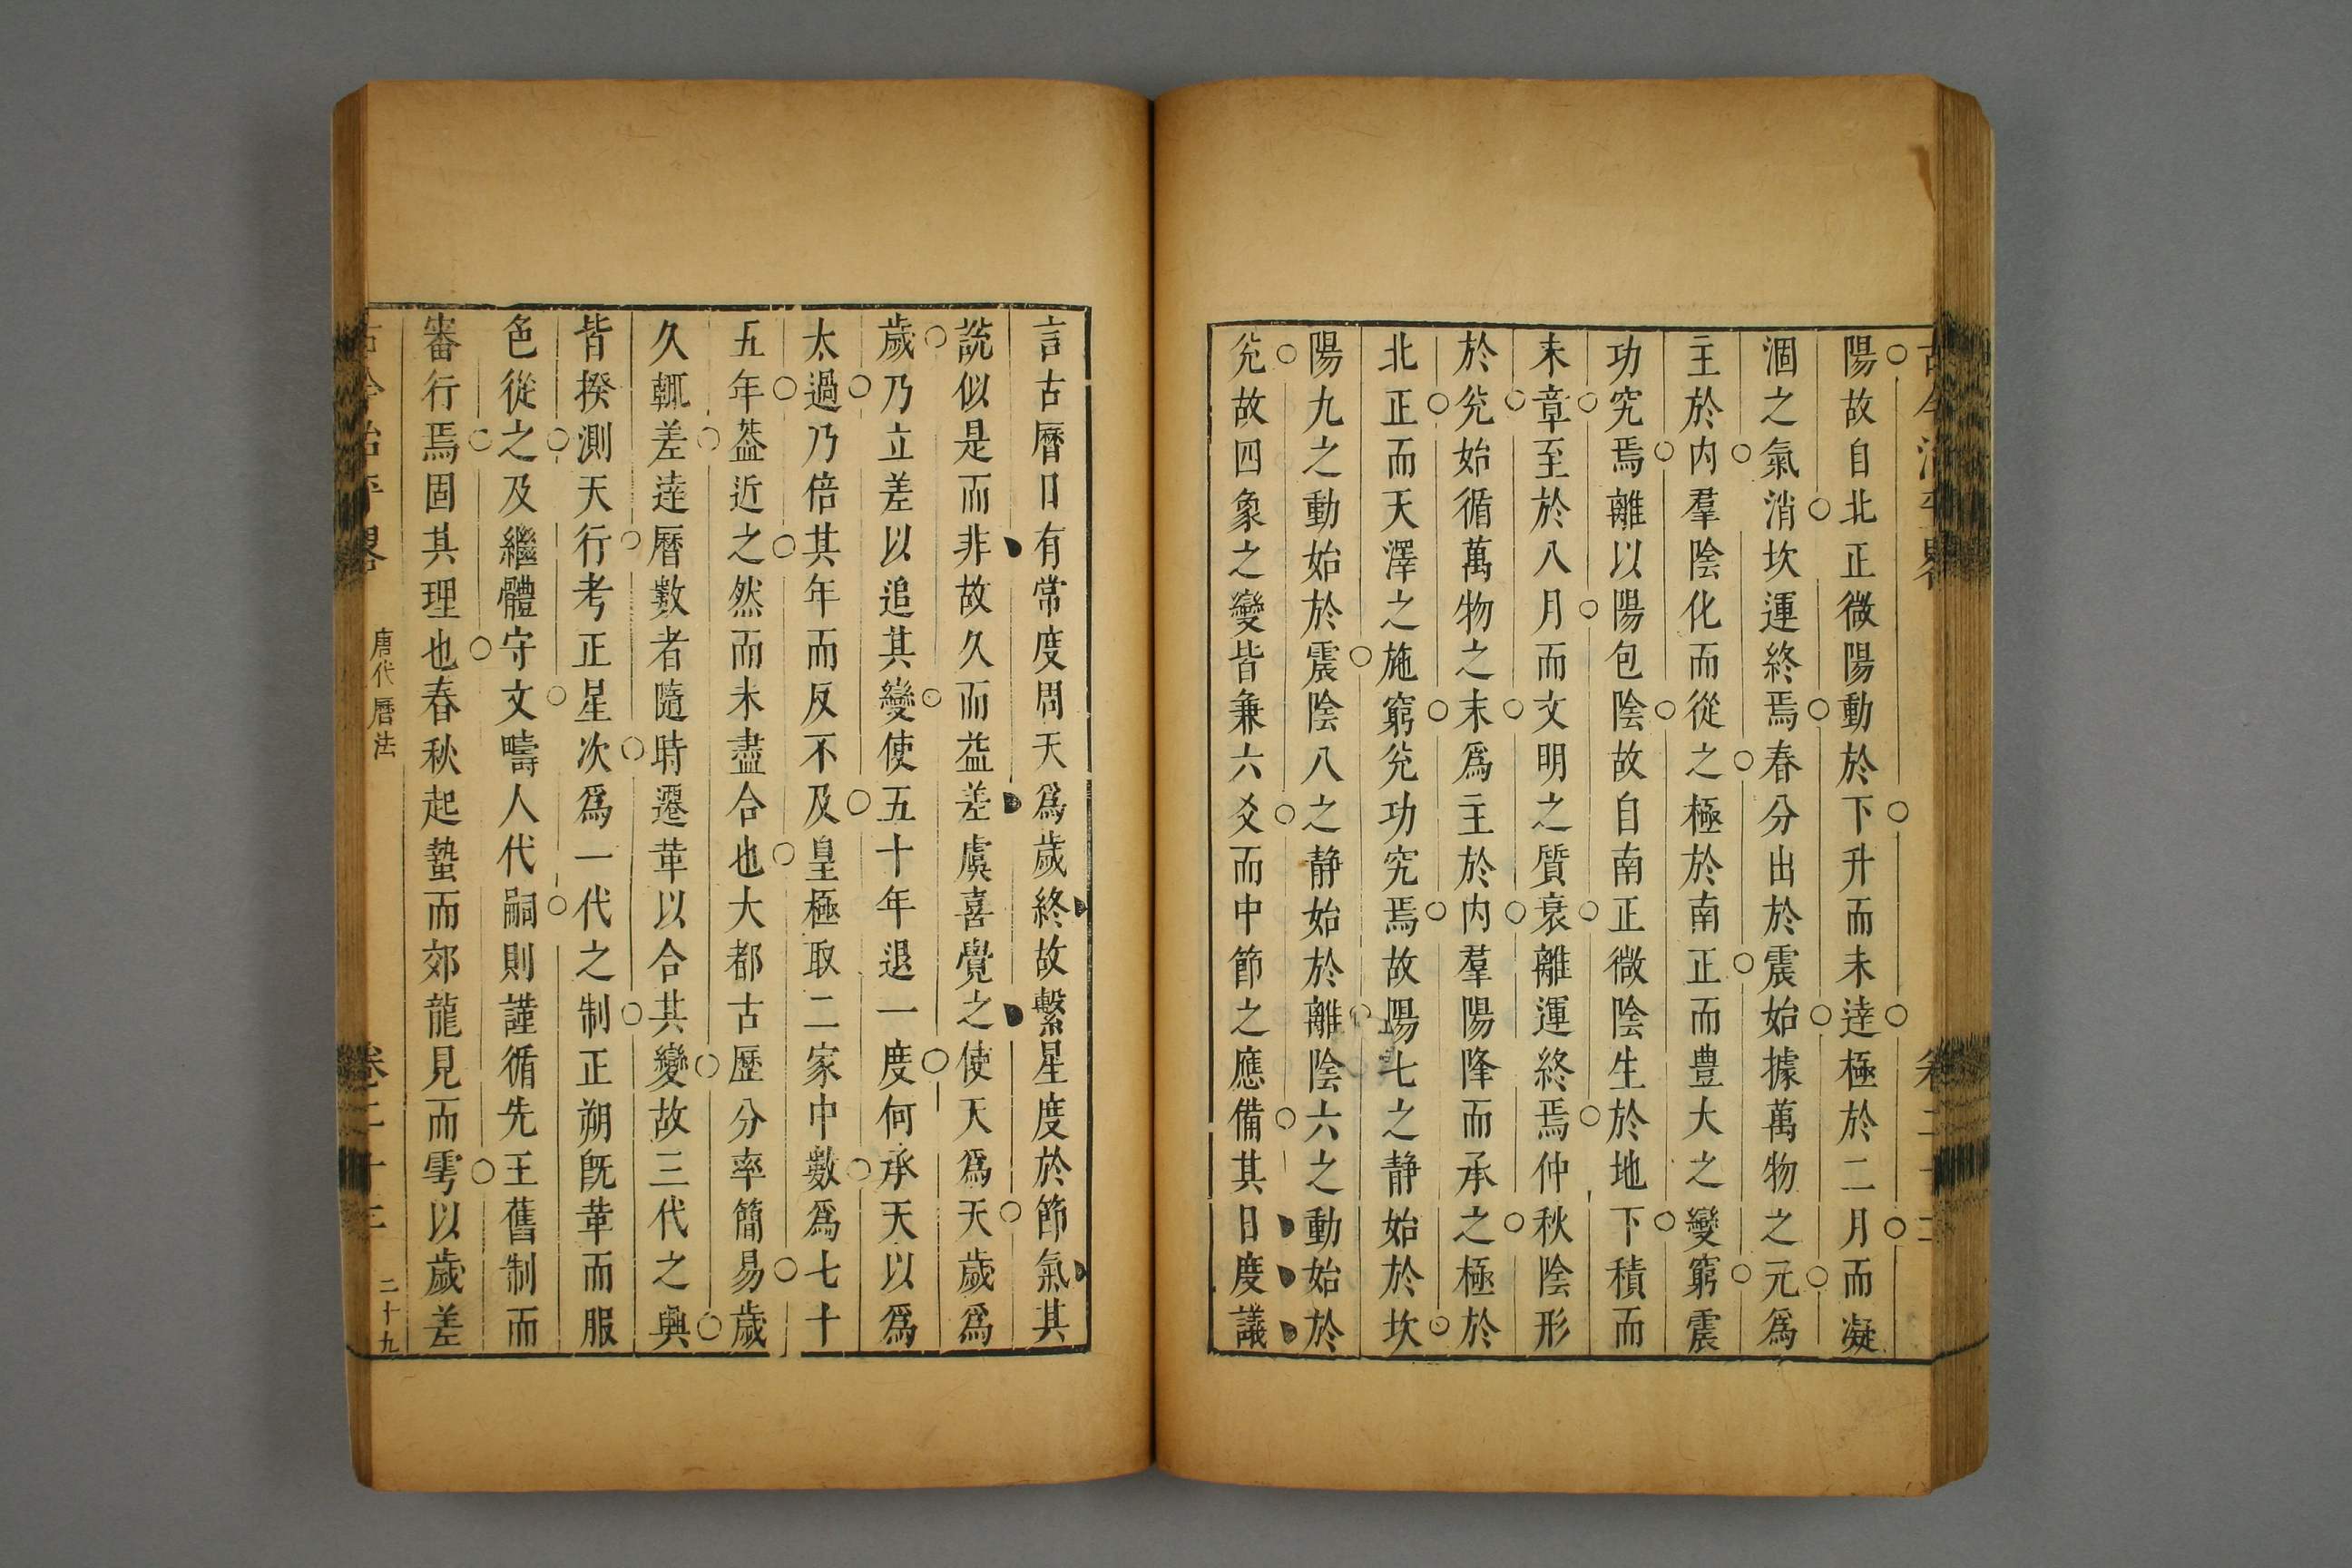 陽故自北正微陽動於下升而未逹極於二月而凝
涸之氣消坎運終焉春分出於震始據萬物之元爲
主於内羣陰化而從之極於南正而豊大之變窮震
功究焉離以陽包陰故自南正微陰生於地下積而
未章至於八月而文明之質衰離運終焉仲秋陰形
於兊始循萬物之末爲主於内羣陽降而承之極於
北正而天澤之施窮兊功究焉故陽七之静始於坎
陽九之動始於震陰八之静始於離陰六之動始於
兊故四象之變皆兼六爻而中節之應備其日度議
言古曆日有常度周天爲歲終故繫星度於節氣其
説似是而非故久而益差虞喜覺之使天爲天歲爲
歲乃立差以追其變使五十年退一度何承天以爲
太過乃倍其年而反不及皇極取二家中數爲七十
五年葢近之然而未盡合也大都古歷分率簡易歲
久輒差逹曆數者隨時遷革以合其變故三代之興
皆揆測天行考正星次爲一代之制正朔既革而服
色從之及繼體守文疇人代嗣則謹循先王舊制而
審行焉固其理也春秋起蟄而郊龍見而雩以歲差
唐代曆法
卷二十三
二十九